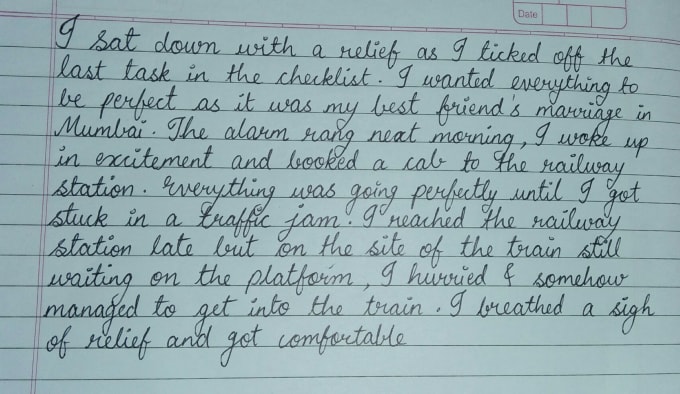 Date
I sat down with a relief as I ticked off the
last task in the checklist. I wanted everything to
be perfect as it was my best friend's marriage in
Mumbai. The alarm rang next morning, I woke up
in excitement and booked a cab to the railway
station. Everything was going perfectly until I got
stuck in a traffic jam. I reached the railway
station late but on the site of the train still
waiting on the platform, I hurried & somehow
managed to get into the train. I breathed a sigh
of relief and got comfortable